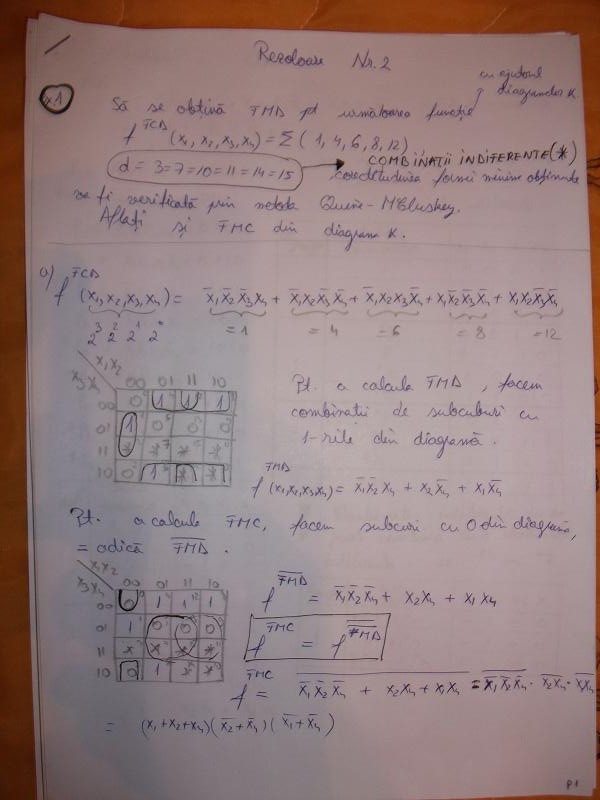 Rezolvare Nr. 2
cu ajutorul
diagramelor K.
1 Să se obțină FMD pt următoarea funcție
f^FCD (x₁, x₂, x₃, x₄) = Σ ( 1, 4, 6, 8, 12)
d = 3=7=10=11=14=15 → COMBINAȚII INDIFERENTE(*)
corectitudinea formei minime obținute
va fi verificată prin metoda Quine-McCluskey.
Aflați și FMC din diagrama K.
a) f^FCD (x₁, x₂, x₃, x₄) = x̄₁x̄₂x̄₃x₄ + x̄₁x₂x̄₃x̄₄ + x̄₁x₂x₃x̄₄ + x₁x̄₂x̄₃x̄₄ + x₁x₂x̄₃x̄₄
2³ 2² 2¹ 2⁰ =1 =4 =6 =8 =12
x₁x₂
x₃x₄ 00 01 11 10
00 0 1 1 1
01 1 0 0 0
11 * * * *
10 0 1 * *
Pt. a calcula FMD, facem
combinații de subcuburi cu
1-rile din diagramă.
f^FMD (x₁,x₂,x₃,x₄) = x̄₁x̄₂x₄ + x₂x̄₄ + x₁x̄₄
Pt. a calcula FMC, facem subcuburi cu 0 din diagramă,
= adică F̅M̅D̅.
x₁x₂
x₃x₄ 00 01 11 10
00 0 1 1 1
01 1 0 0 0
11 * * * *
10 0 1 * *
f^F̅M̅D̅ = x̄₁x̄₂x̄₄ + x₂x₄ + x₁x₄
f^FMC = f^F̅M̅D̅
f^FMC = \overline{x̄₁x̄₂x̄₄ + x₂x₄ + x₁x₄} = \overline{x̄₁x̄₂x̄₄} · \overline{x₂x₄} · \overline{x₁x₄}
= (x₁+x₂+x₄)(x̄₂+x̄₄)(x̄₁+x̄₄)
P1